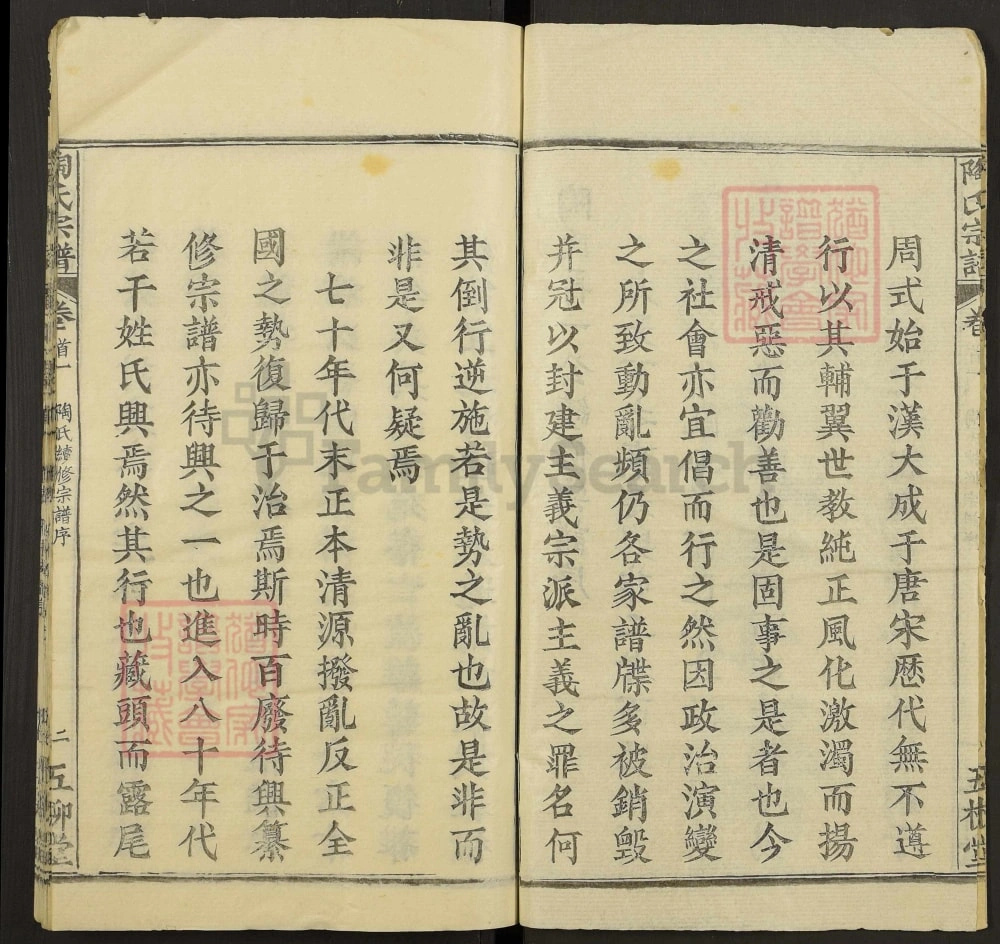 陶氏宗譜
五柳堂
周式始于漢大成于唐宋歷代無不遵
行以其輔翼世教純正風化激濁而揚
清戒惡而勸善也是固事之是者也今
之社會亦宜倡而行之然因政治演變
之所致動亂頻仍各家譜牒多被銷毀
并冠以封建主義宗派主義之罪名何
其倒行逆施若是勢之亂也故是非而
非是又何疑焉
七十年代末正本清源撥亂反正全
國之勢復歸于治焉斯時百廢待興纂
修宗譜亦待興之一也進入八十年代
若干姓氏興焉然其行也藏頭而露尾
陶氏宗譜
卷首一
陶氏續修宗譜序
二
五柳堂
FamilySearch